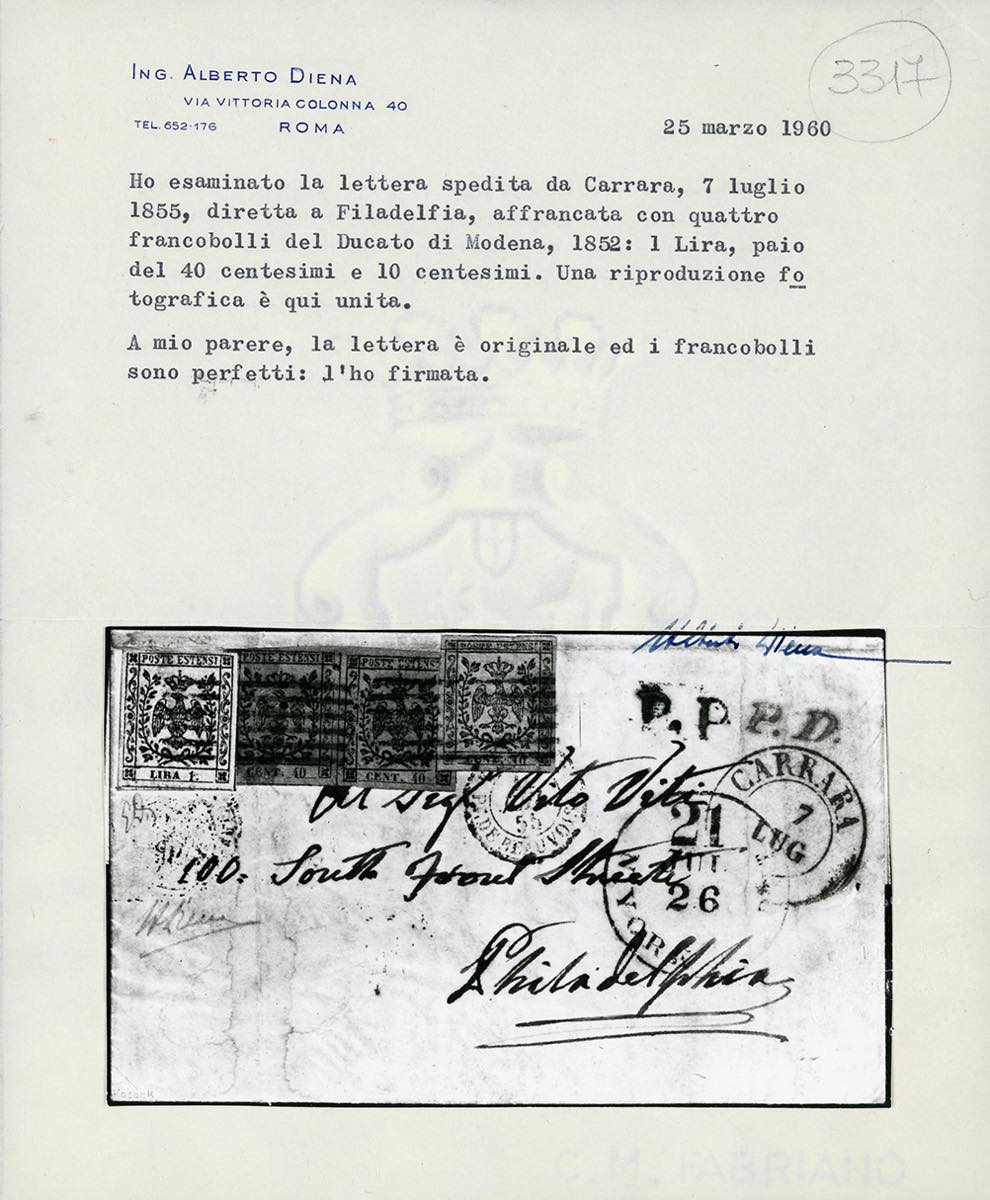 ING. ALBERTO DIENA
VIA VITTORIA COLONNA 40
TEL. 652-176 ROMA
3317
25 marzo 1960
Ho esaminato la lettera spedita da Carrara, 7 luglio
1855, diretta a Filadelfia, affrancata con quattro
francobolli del Ducato di Modena, 1852: 1 Lira, paio
del 40 centesimi e 10 centesimi. Una riproduzione fo
tografica è qui unita.
A mio parere, la lettera è originale ed i francobolli
sono perfetti: l'ho firmata.
Alberto Diena
POSTE ESTENSI
LIRA 1.
POSTE ESTENSI
CENT. 40
POSTE ESTENSI
CENT. 40
POSTE ESTENSI
P.P.
P.D.
CARRARA
7
LUG
DE BEAUVOIS
21
26
YORK
Vito Viti
100. South Front Street
ADiena
Philadelphia
C. M. FABRIANO